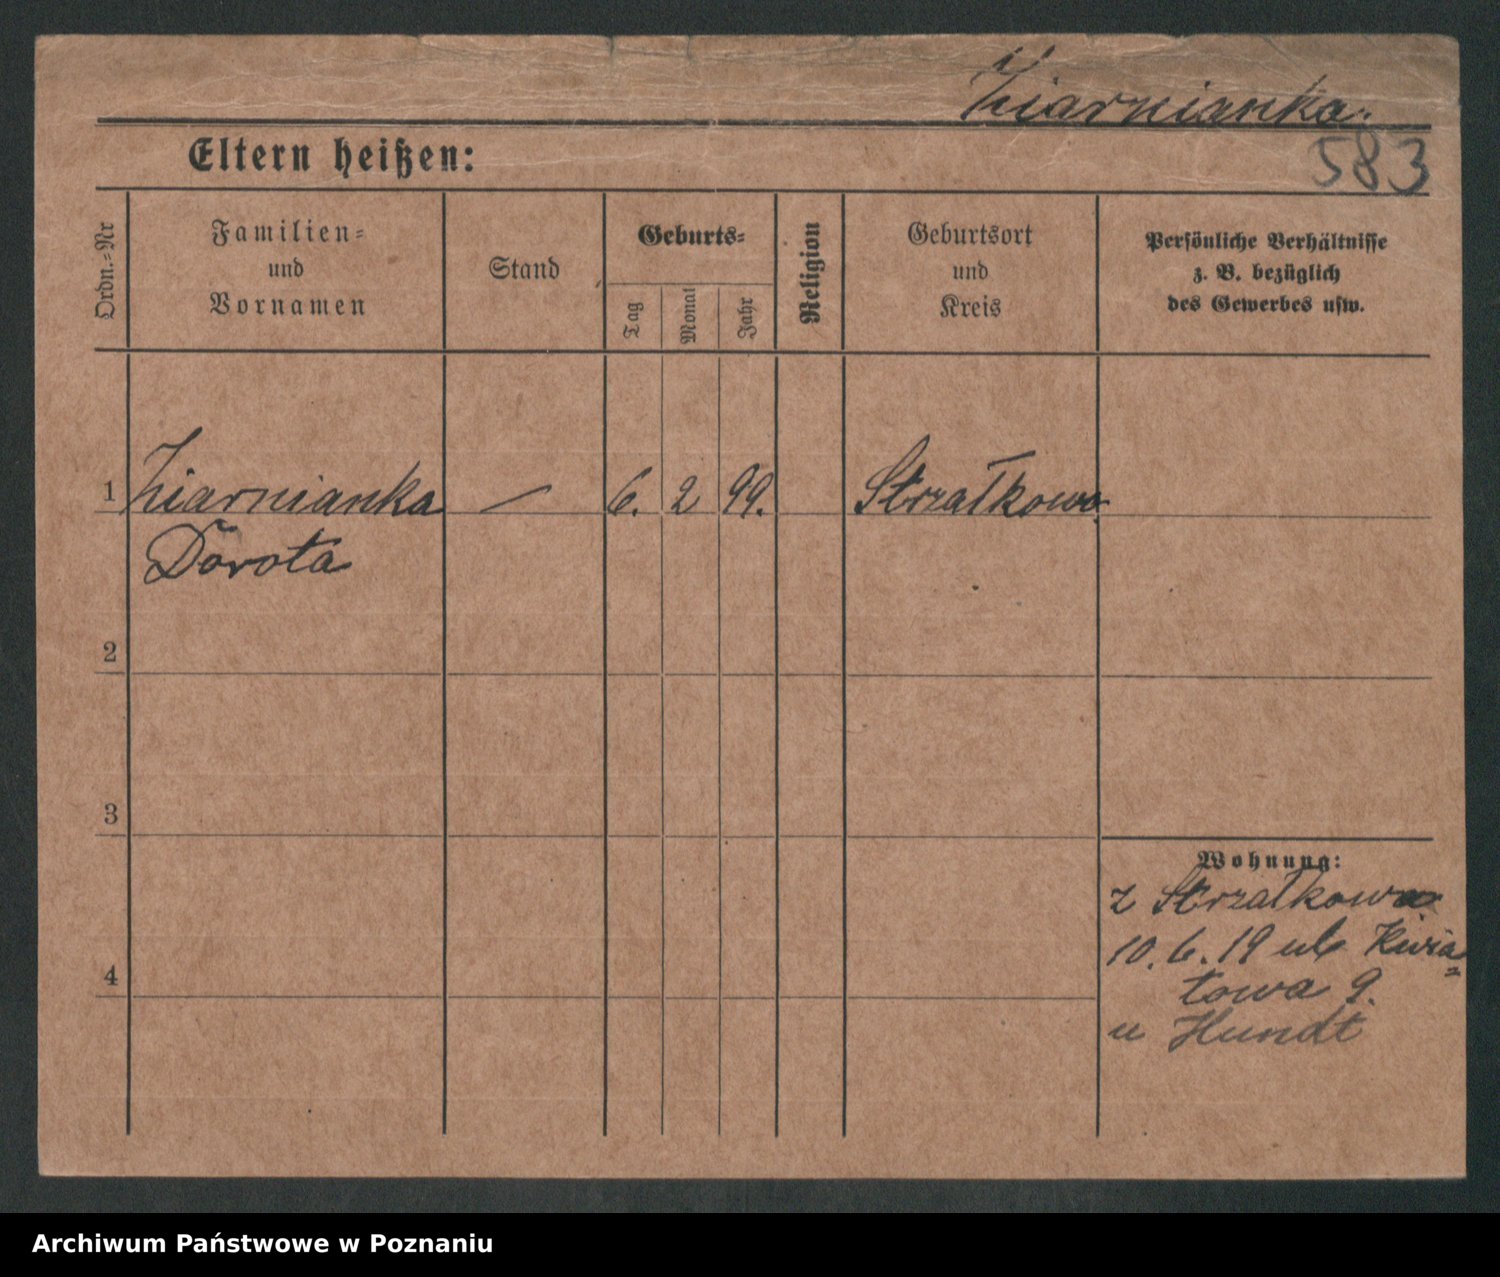 Ziarnianka.
583
Eltern heißen:
Ordn.=Nr
Familien=
und
Vornamen
Stand
Geburts=
Tag
Monat
Jahr
Religion
Geburtsort
und
Kreis
Persönliche Verhältnisse
z. B. bezüglich
des Gewerbes usw.
1 Ziarnianka — 6. 2 99. Strzałkowo
Dorota
2
3
4
Wohnung:
z Strzałkowa
10.6.19 ul Kwia=
towa 9.
u Hundt
Archiwum Państwowe w Poznaniu